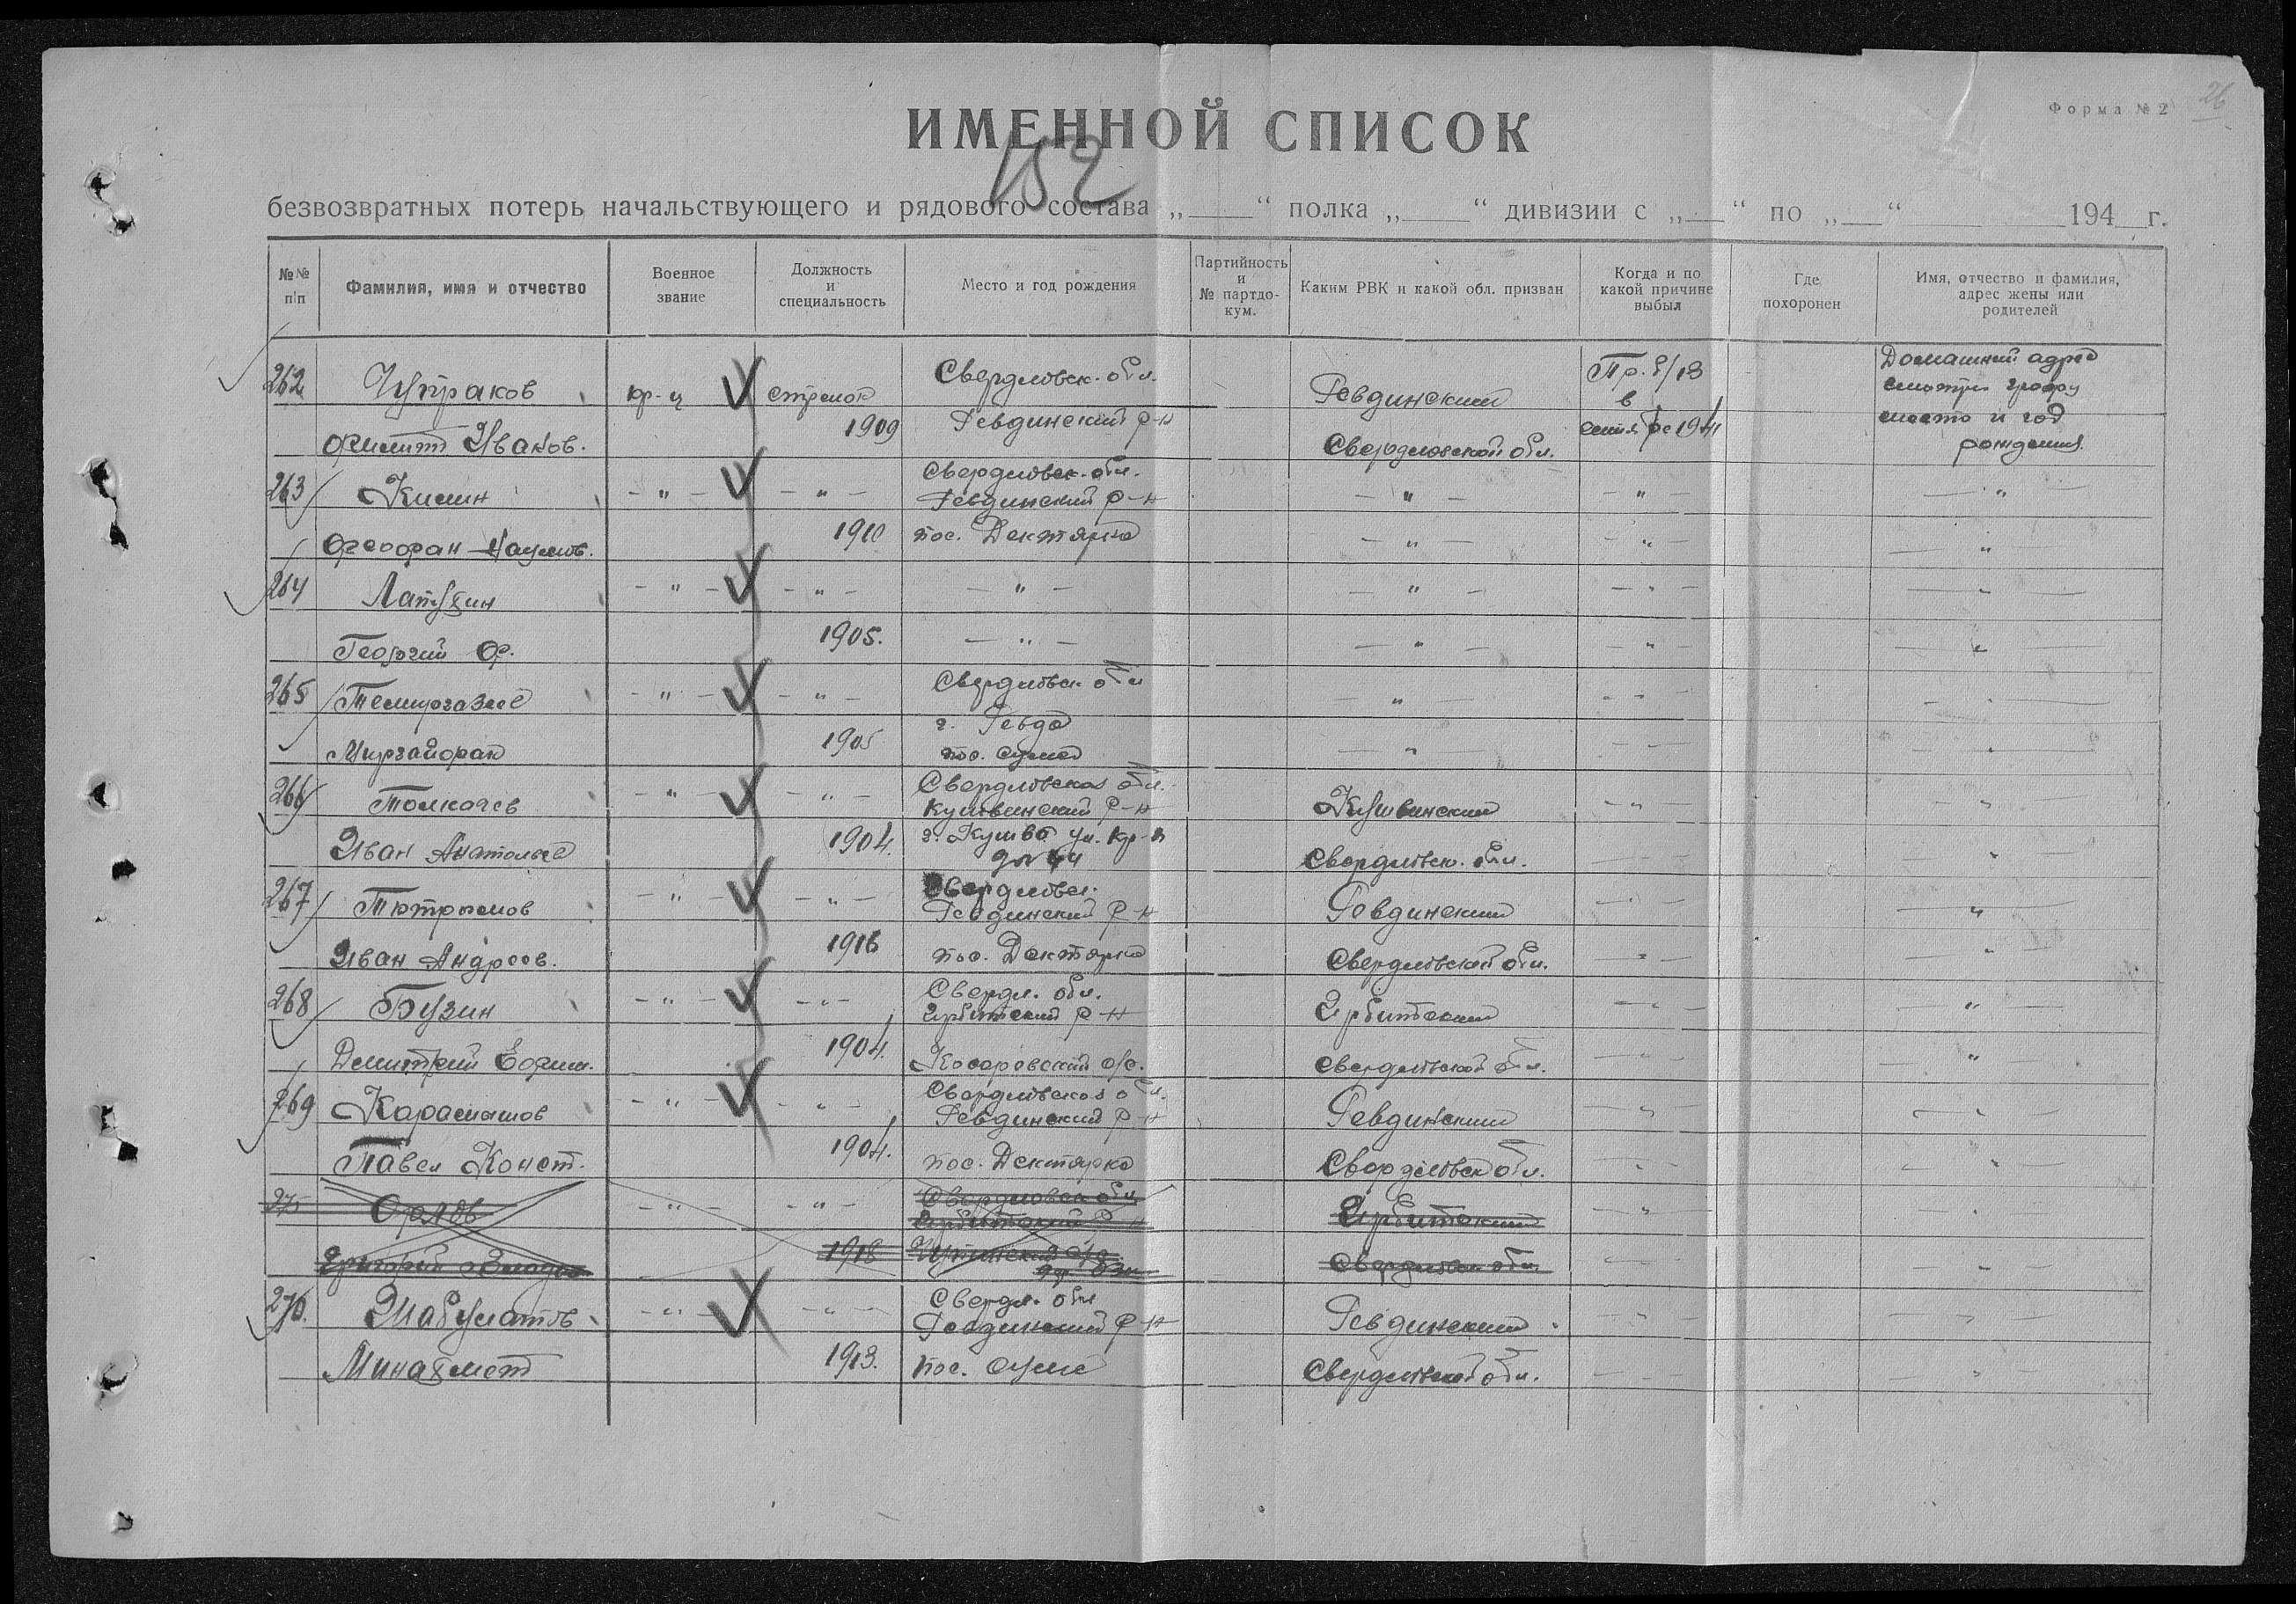 Форма № 2
26
ИМЕННОЙ СПИСОК
152
безвозвратных потерь начальствующего и рядового состава „ “ полка „ “ дивизии с „ “ по „ “ 194 г.
№№ п/п
Фамилия, имя и отчество
Военное звание
Должность и специальность
Место и год рождения
Партийность и № партдокум.
Каким РВК и какой обл. призван
Когда и по какой причине выбыл
Где похоронен
Имя, отчество и фамилия, адрес жены или родителей
262 Чупраков кр-ц стрелок Свердловск. обл. Ревдинский Пр. б/в Домашний адрес
в смотри графу
Филипп Иванов. 1909 Ревдинский р-н Свердловской обл. сентябре 1941 место и год
рождения.
263 Килин - " - - " - Свердловск. обл. - " - - " - - " -
Ревдинский р-н
Феофан Наумов. 1910 пос. Дегтярка - " - - " - "
264 Лапухин - " - - " - - " - - " - - " - - " -
Георгий Ф. 1905. - " - - " - - " - "
265 - " - - " - Свердловск обл - " - - " -
г. Ревда
1905 пос. - " -
266 Толкачев - " - - " - Свердловская обл. Кушвинский - " - - " -
Кушвинский р-н
Иван Анатольев 1904. г. Кушва ул. Кр-я Свердловск. обл. "
267 - " - - " - Свердловск. Ревдинский - " - "
Ревдинский р-н
Иван Андреев. 1916 пос. Дегтярка Свердловской обл. - " - "
268 Бузин - " - - " - Свердл. обл. Ирбитский - " - "
Ирбитский р-н
Дмитрий Ефим. 1904. с/с. Свердловской обл. - " - "
269 Карамышов - " - - " - Свердловская обл. Ревдинский - " - "
Ревдинский р-н
Павел Конст. 1904. пос. Дегтярка Свердловск обл. - " -
Орлов - " - - " - Свердловск обл Ирбитский - " -
Ирбитский р-н
Григорий 1918 Свердловск обл.
270. - " - - " - Свердл. обл Ревдинский - " - - " -
Ревдинский р-н
Минахмет 1913. пос. Свердловской обл.